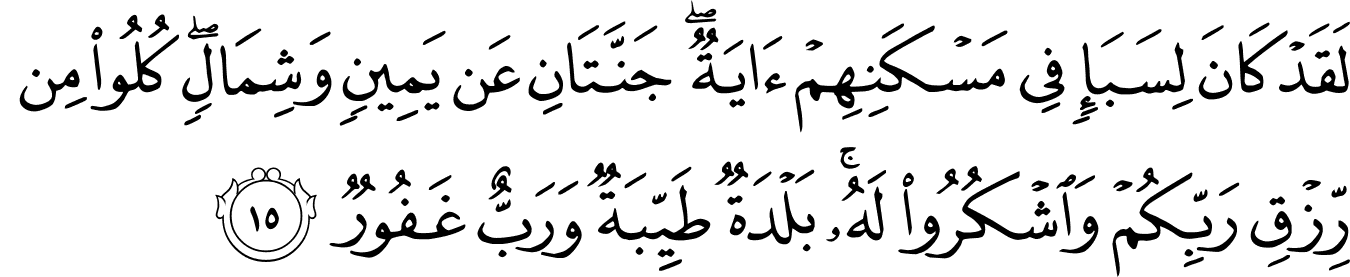 لَقَدْ كَانَ لِسَبَإٍ فِي مَسْكَنِهِمْ ءَايَةٌ ۖ جَنَّتَانِ عَن يَمِينٍ وَشِمَالٍ ۖ كُلُوا۟ مِن
رِّزْقِ رَبِّكُمْ وَٱشْكُرُوا۟ لَهُۥ ۚ بَلْدَةٌ طَيِّبَةٌ وَرَبٌّ غَفُورٌ ١٥